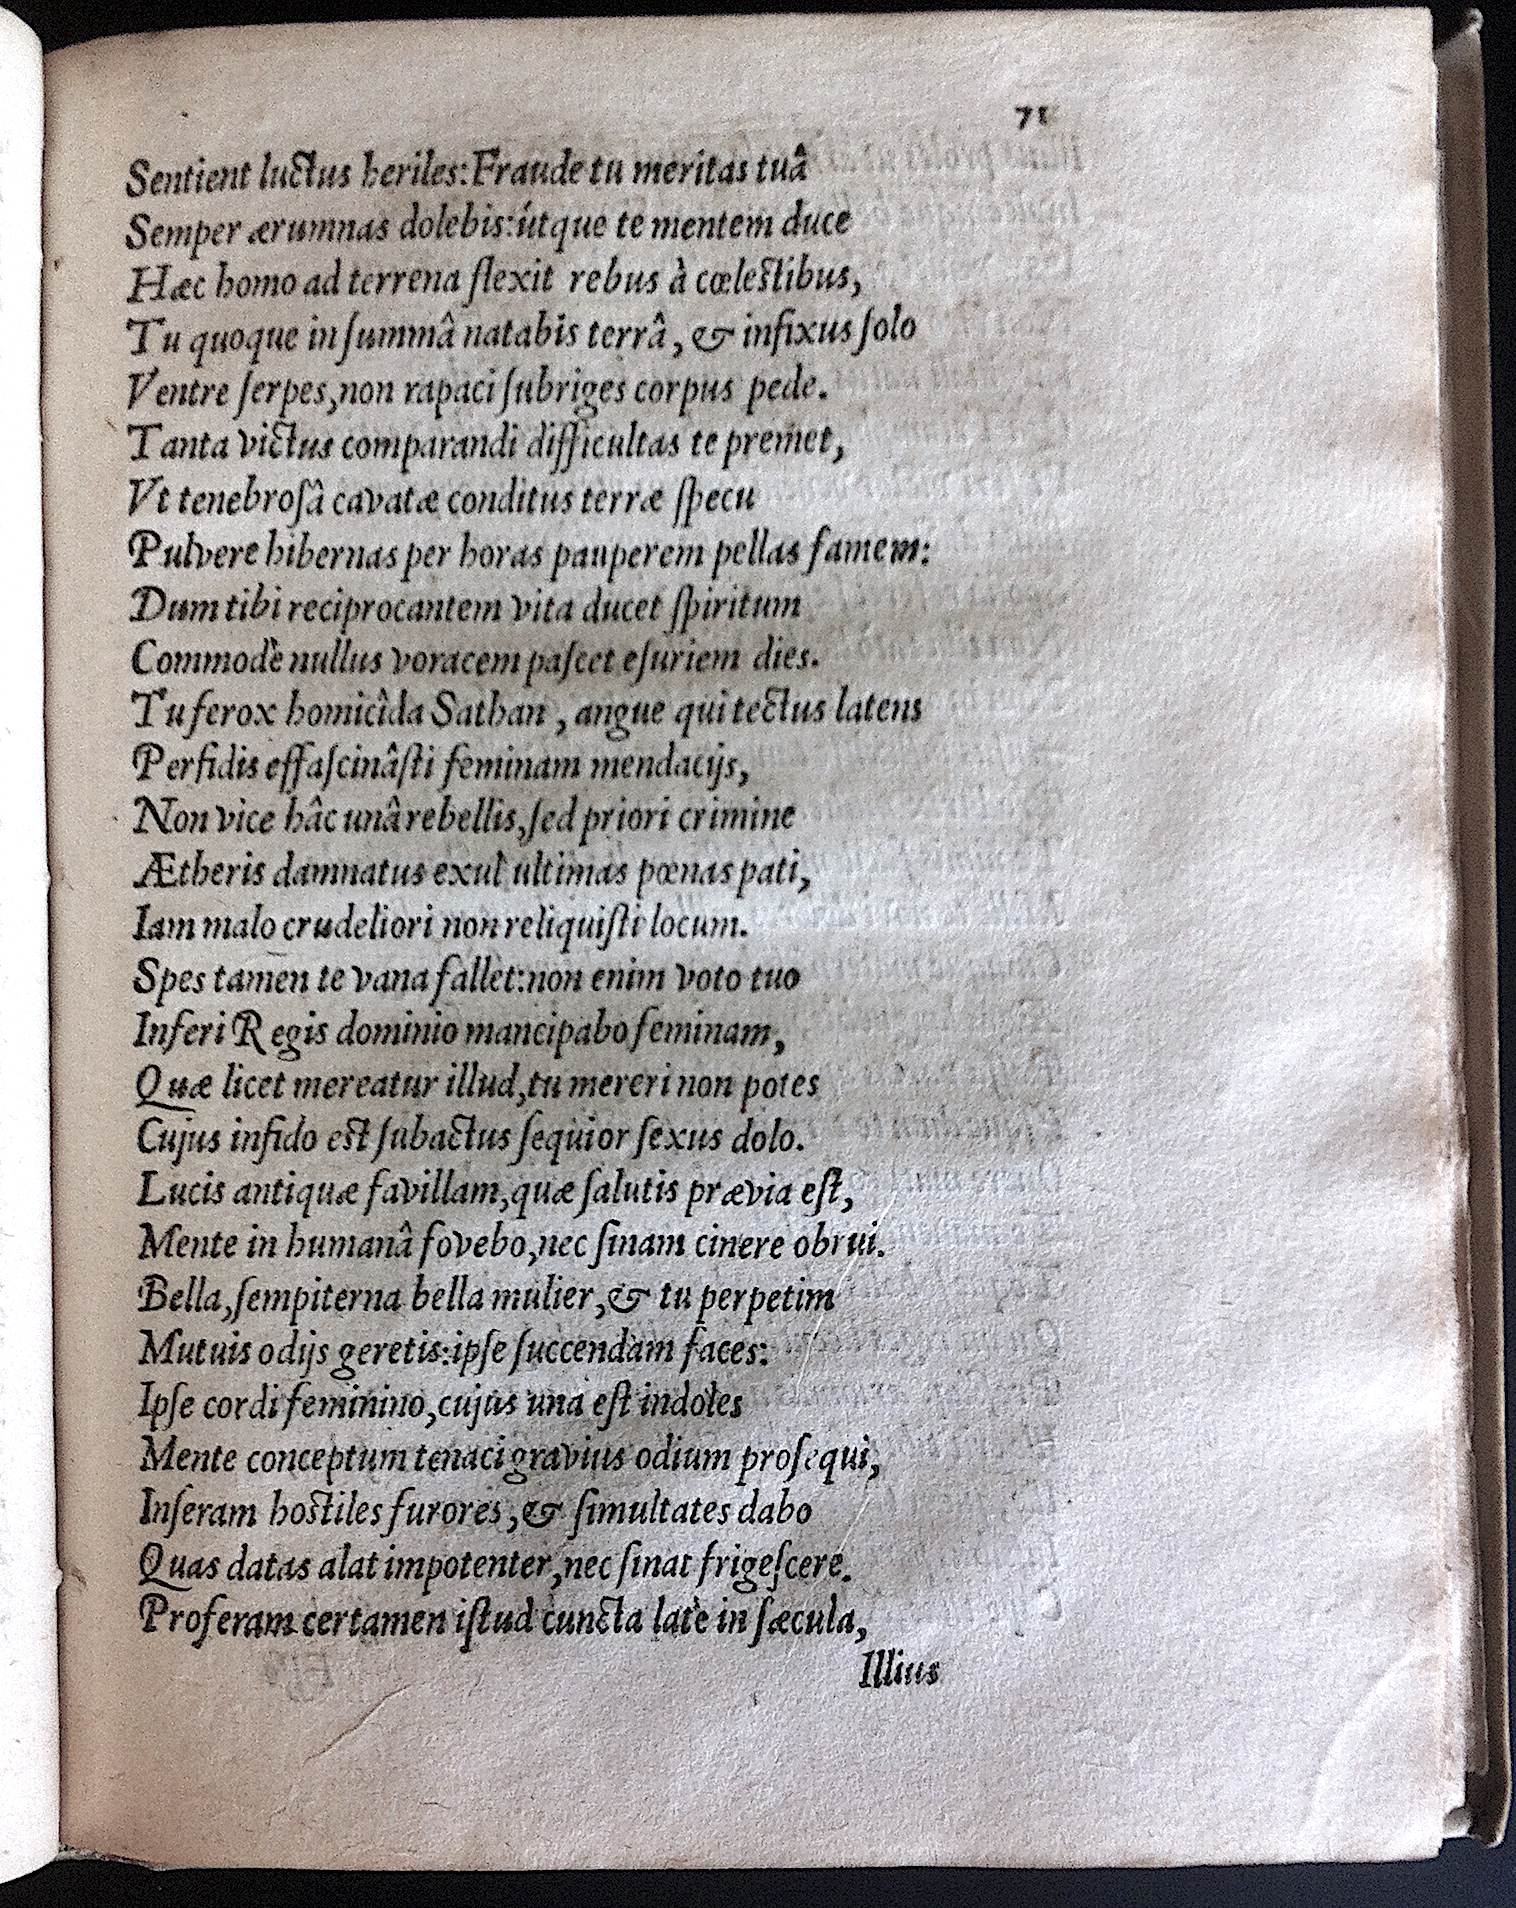 71
Sentient luctus heriles: Fraude tu meritas tuâ
Semper ærumnas dolebis: útque te mentem duce
Hæc homo ad terrena flexit rebus à cœlestibus,
Tu quoque in ſummâ natabis terrâ, & infixus ſolo
Ventre ſerpes, non rapaci ſubriges corpus pede.
Tanta victus comparandi difficultas te premet,
Vt tenebroſâ cavatæ conditus terræ ſpecu
Pulvere hibernas per horas pauperem pellas famem:
Dum tibi reciprocantem vita ducet ſpiritum
Commodè nullus voracem paſcet eſuriem dies.
Tu ferox homicîda Sathan, angue qui tectus latens
Perfidis effaſcinâſti feminam mendacijs,
Non vice hâc unâ rebellis, ſed priori crimine
Ætheris damnatus exul ultimas pœnas pati,
Iam malo crudeliori non reliquiſti locum.
Spes tamen te vana fallet: non enim voto tuo
Inferi Regis dominio mancipabo feminam,
Quæ licet mereatur illud, tu mereri non potes
Cujus infido est ſubactus ſequior ſexus dolo.
Lucis antiquæ favillam, quæ ſalutis prævia eſt,
Mente in humanâ fovebo, nec ſinam cinere obrui.
Bella, ſempiterna bella mulier, & tu perpetim
Mutuis odijs geretis: ipſe ſuccendam faces:
Ipſe cordi feminino, cujus una eſt indoles
Mente conceptum tenaci gravius odium proſequi,
Inſeram hostiles furores, & ſimultates dabo
Quas datas alat impotenter, nec ſinat frigeſcere.
Proferam certamen iſtud cuncta latè in ſæcula,
Illius